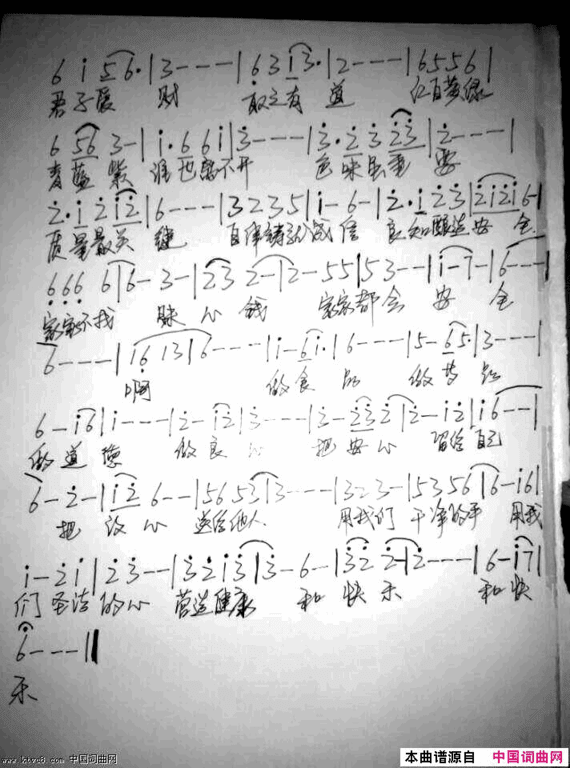 6 i 5 6· | 3 - - - | 6 3 i 3· | 2 - - - | 6 5 5 6 |
君子爱 财 取之有 道 红百黄绿
6 5 6 3 - | i · 6 6 i | 3 - - - | 3 · 2 3 2 3 | 2 - - - |
青蓝 紫 谁也离不开 色味虽重 要
2 · i 2 i 2 | 6 - - - | 3 2 3 5 | i - 6 - | 2 · i 2 3 | 2 i 2 i 6 - |
质量最关 键 自律铸就诚信 良知酿造安 全
6 6 6 6 | 6 - 3 - | 2 3 2 - | 2 - 5 5 | 5 3 - - | i - 7 - | 6 - - - |
家家不找 昧 心 钱 家家都会 安 全
6 - - - | i 6 i 3 | 6 - - - | i - 6 i · | 6 - - - | 5 - 6 5 · | 3 - - - |
啊 做食 品 做 品
6 - i 6 | i - - - | 2 - i 2 | 3 - - - | 2 - 2 3 2 | 2 - i 2 | i 6 - - |
做道 德 做良 心 把安心 留给自己
6 - 2 - | i 2 6 - - | 5 6 5 3 | 3 - - - | 3 2 2 3 - | 5 3 5 6 | 6 - i 6 |
把 放心 送给他人 用我们 干净的手 用我
i - 2 i | 2 3 - - | 3 2 i 3 | 3 - 6 - | 3 2 2 - | 2 - - - | 6 - i 7 |
们圣洁的心 营造健康 和 快 乐 和快
6 - - - ‖
乐
www.ktvc8.com 中国词曲网
本曲谱源自 中国词曲网